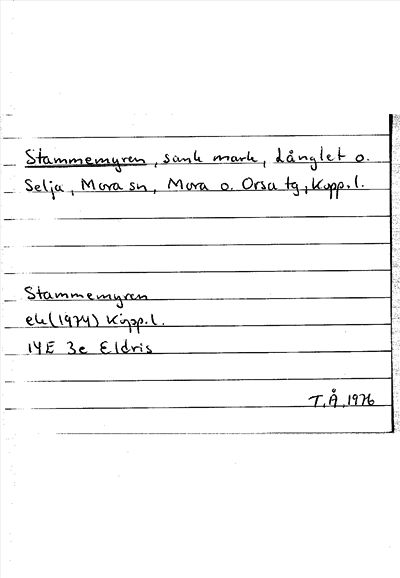 Stammemyren, sank mark, Långlet o.
Selja, Mora sn, Mora o. Orsa tg, Kopp.l.
Stammemyren
ek (1974) Kopp.l.
14E 3e Eldris
T.Å. 1976